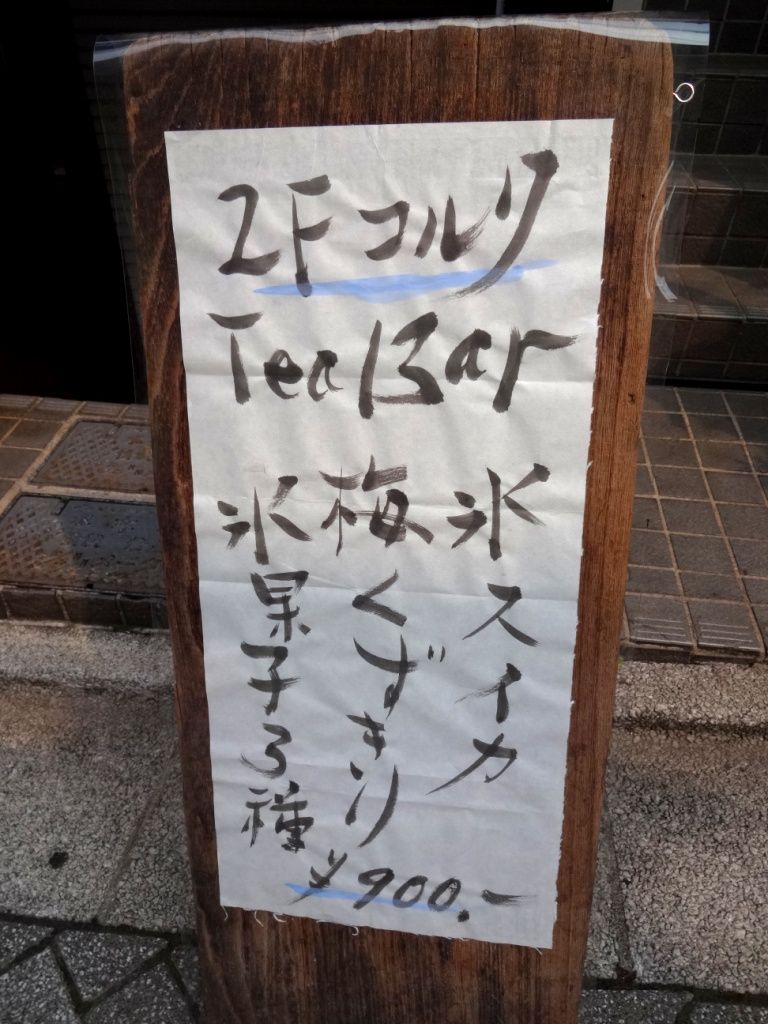 2F コルリ
Tea Bar
氷スイカ
梅くずきり
氷菓子3種
¥900.-